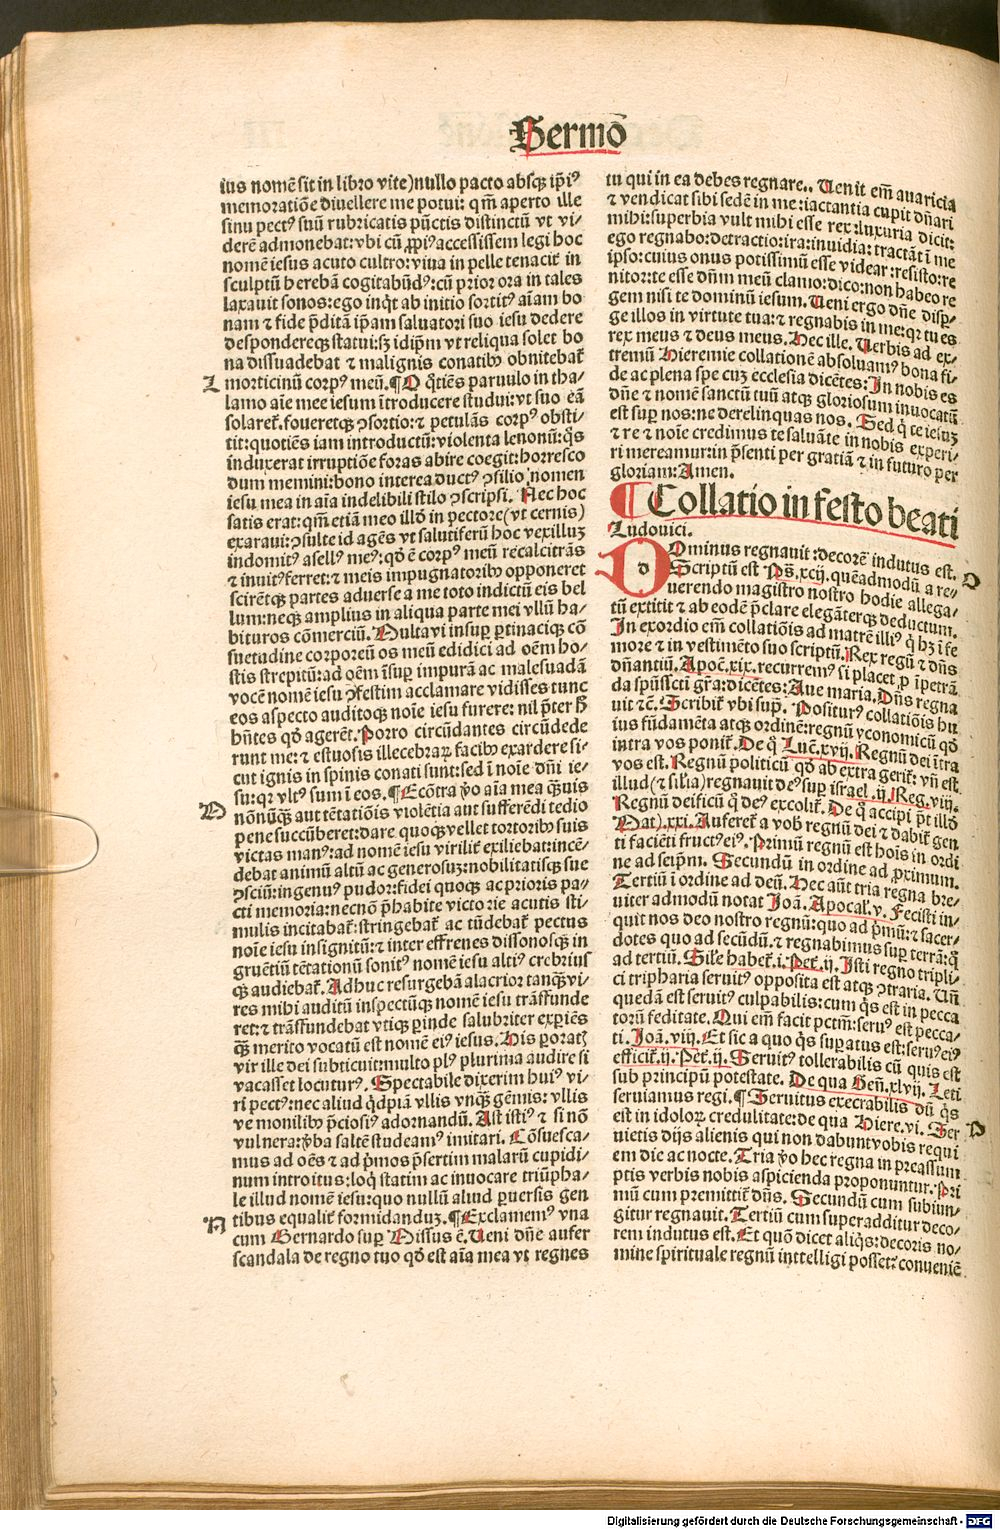 Sermō
ius nomē sit in libro vite) nullo pacto absqȝ ip̄iꝰ
memoratiōe diuellere me potui: qm̄ aperto ille
sinu pectꝰ suū rubricatis pūctis distinctū vt vi⸗
derē admonebat: vbi cū ꝓpiꝰ accessissem legi hoc
nomē iesus acuto cultro: viua in pelle tenacit̄ in
sculptū herebā cogitabūdꝰ: cū prior ora in tales
laxauit sonos: ego inq̇t ab initio sortitꝰ aīam bo
nam ⁊ fide p̄ditā ip̄am saluatori suo iesu dedere
despondereqȝ statui: sȝ idip̄m vt reliqua solet bo
na dissuadebat ⁊ malignis conatibꝰ obnitebat᷑
L
morticinū corpꝰ meū. ¶ O q̇tiēs paruulo in tha⸗
lamo aīe mee iesum ītroducere studui: vt suo eā
solaret᷑. foueretqȝ ꝯsortio: ⁊ petulās corpꝰ obsti⸗
tit: quotiēs iam introductū: violenta lenonū: q̄s
īduxerat irruptiōe foras abire coegit: horresco
dum memini: bono interea ductꝰ ꝯsilio nomen
iesu mea in aīa indelibili stilo ꝯscripsi. Nec hoc
satis erat: qm̄ etiā meo illō in pectore (vt cernis)
exaraui: ꝯsulte id agēs vt salutiferū hoc vexilluȝ
indomitꝰ asellꝰ meꝰ: qd̄ ē corpꝰ meū recalcitrās
⁊ inuitꝰ ferret: ⁊ meis impugnatoribꝰ opponeret
scirētqȝ partes aduerse a me toto indictū eis bel
lum: neqȝ amplius in aliqua parte mei vllū ha⸗
bituros cōmerciū. Multaui insuꝑ ꝑtinaciqȝ cō
suetudine corporeū os meū edidici ad oēm ho⸗
stis strepitū: ad oēm īsuꝑ impurā ac malesuadā
vocē nomē iesu ꝯfestim acclamare vidisses tunc
eos aspecto auditoqȝ noīe iesu furere: nil p̄ter
hn̄tes qd̄ agerēt. Porro circūdantes circūdede
runt me: ⁊ estuosis illecebraꝝ facibꝰ exardere si⸗
cut ignis in spinis conati sunt: sed ī noīe dn̄i ie⸗
M
su: qꝛ vltꝰ sum ī eos. ¶ Ecōtra ꝟo aīa mea q̄uis
nōnūqȝ aut tētatiōis violētia aut sufferēdi tedio
pene succūberet: dare quoqȝ vellet tortoribꝰ suis
victas manꝰ: ad nomē iesu virilit᷑ exiliebat: incē⸗
debat animū altū ac generosuȝ: nobilitatisqȝ sue
ꝯsciū: ingenuꝰ pudor: fidei quoqȝ ac prioris pa⸗
cti memoria: necnō p̄habite victorie acutis sti⸗
mulis incitabat᷑: stringebat᷑ ac tūdebat᷑ pectus
noīe iesu insignitū: ⁊ inter effrenes dissonosqȝ in
gruētiū tētationū sonitꝰ nomē iesu altiꝰ crebrius
qȝ audiebat᷑. Adhuc resurgebā alacrior tanqȝ vi⸗
res mihi auditū inspectūqȝ nomē iesu trāsfunde
ret: ⁊ trāsfundebat vtiqȝ ꝑinde salubriter exꝑiēs
q̄ȝ merito vocatū est nomē eiꝰ iesus. His ꝑoratȝ
vir ille dei subticuit: multo plꝰ plurima audire si
vacasset locuturꝰ. Spectabile dixerim huiꝰ vi⸗
ri pectꝰ: nec aliud q̇dpiā vllis vnqȝ gēmis: vllis
ve monilibꝰ p̄ciosiꝰ adornandū. Ast istiꝰ ⁊ si nō
vulnera: ꝟba saltē studeamꝰ imitari. Cōsuesca⸗
mus ad oēs ⁊ ad p̄mos p̄sertim malarū cupidi⸗
num introitus: loq̇ statim ac inuocare triūpha⸗
le illud nomē iesu: quo nullū aliud ꝑuersis gen
N
tibus equalit᷑ formidanduȝ. ¶ Exclamemꝰ vna
cum Bernardo suꝑ Missus ē. Ueni dn̄e aufer
scandala de regno tuo qd̄ est aīa mea vt regnes
tu qui in ea debes regnare.. Uenit em̄ auaricia
⁊ vendicat sibi sedē in me: iactantia cupit dn̄ari
mihi: superbia vult mihi esse rex: luxuria dicit:
ego regnabo: detractio: ira: inuidia: tractāt ī me
ipso: cuius onus potissimū esse videar: resisto: re
nitor: te esse dn̄m meū clamo: dico: non habeo re
gem nisi te dominū iesum. Ueni ergo dn̄e disꝑ⸗
ge illos in virtute tua: ⁊ regnabis in me: qꝛ tu es
rex meus ⁊ deus meus. Hec ille. Uerbis ad ex⸗
tremū Hieremie collationē absoluamꝰ bona fi⸗
de ac plena spe cuȝ ecclesia dicētes: In nobis es
dn̄e ⁊ nomē sanctū tuū atqȝ gloriosum inuocatū
est suꝑ nos: ne derelinquas nos. Sed q̇ te iesuȝ
⁊ re ⁊ noīe credimus te saluāte in nobis experi⸗
ri mereamur: in p̄senti per gratiā ⁊ in futuro per
gloriam: Amen.
¶ Collatio in festo beati
Ludouici.
O
DOminus regnauit: decorē indutus est.
Scriptū est Ps̄. xcij. quēadmodū a re⸗
uerendo magistro nostro hodie allega⸗
tū extitit ⁊ ab eodē p̄clare elegāterqȝ deductum.
In exordio em̄ collatiōis ad matrē illiꝰ q̇ hȝ ī fe
more ⁊ in vestimēto suo scriptū. Rex regū ⁊ dn̄s
dn̄antiū. Apoc̄. xix. recurremꝰ si placet ꝓ īpetrā
da spūssct̄i gr̄a: dicētes: Aue maria. Dn̄s regna
uit ⁊c̄. Scribit᷑ vbi suꝑ. Positurꝰ collatiōis hu
ius fūdamēta atqȝ ordinē: regnū yconomicū qd̄
intra vos ponit᷑. De q̇ Luc̄. xvij. Regnū dei ītra
vos est. Regnū politicū qd̄ ab extra gerit᷑: vn̄ est
illud (⁊ sil̄ia) regnauit deꝰ suꝑ israel. ij. Reg. viij.
Regnū deificū q̇ deꝰ excolit᷑. De q̇ accipi p̄t illd̄
Mat). xxi. Auferet᷑ a vob̄ regnū dei ⁊ dabit᷑ gen
ti faciēti fructꝰ eiꝰ. Primū regnū est hoīs in ordi
ne ad seip̄m. Secundū in ordine ad ꝓximum.
Tertiū ī ordine ad deū. Hec aūt tria regna bre⸗
uiter admodū notat Joā. Apocal̄. v. Fecisti in⸗
quit nos deo nostro regnū: quo ad p̄mū: ⁊ sacer⸗
dotes quo ad secūdū. ⁊ regnabimus suꝑ terrā: q̇
ad tertiū. Sil̄e habet᷑. i. Pet᷑. ij. Isti regno tripli⸗
ci tripharia seruitꝰ opposita est atqȝ ꝯtraria. Un̄
quedā est seruitꝰ culpabilis: cum q̇s est in pecca
torū feditate. Qui em̄ facit pctm̄: seruꝰ est pecca⸗
ti. Joā. viij. Et sic a quo q̇s suꝑatus est: seruꝰ eiꝰ
efficit᷑. ij. Pet᷑. ij. Seruitꝰ tollerabilis cū quis est
sub principū potestate. De qua Gen̄. xlvij. Leti
seruiamus regi. ¶ Seruitus execrabilis dū q̇s
P
est in idoloꝝ credulitate: de qua Hiere. vi. Ser
uietis dijs alienis qui non dabunt vobis requi
em die ac nocte. Tria ꝟo hec regna in preassum
ptis verbis nobis aspicienda proponuntur. Pri
mū cum premittit᷑ dn̄s. Secundū cum subiun⸗
gitur regnauit. Tertiū cum superadditur deco⸗
rem indutus est. Et quō dicet aliq̇s: decoris no⸗
mine spirituale regnū inttelligi posset: conueniē
Digitalisierung gefördert durch die Deutsche Forschungsgemeinschaft - DFG